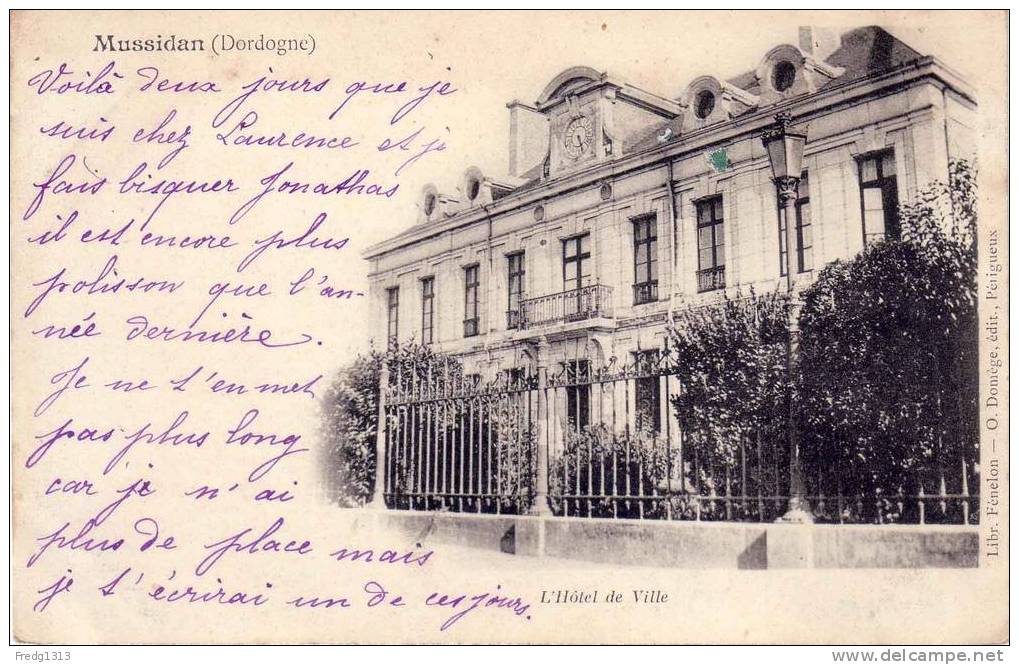 Mussidan (Dordogne)
Voilà deux jours que je
suis chez Laurence et je
fais bisquer Jonathas
il est encore plus
polisson que l'an-
née dernière.
Je ne t'en met
pas plus long
car je n'ai
plus de place mais
je t'écrirai un de ces jours.
L'Hôtel de Ville
Libr. Fénelon — O. Domège, édit., Périgueux
Fredg1313
www.delcampe.net